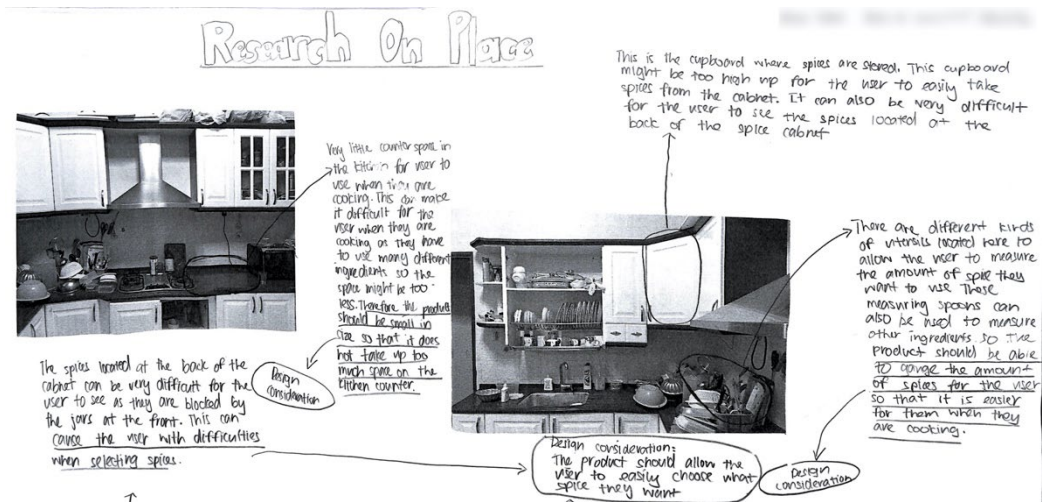 Research On Place
This is the cupboard where spices are stored. This cupboard
might be too high up for the user to easily take
spices from the cabnet. It can also be very difficult
for the user to see the spices located at the
back of the spice cabnet
Very little counter space in
the kitchen for user to
use when they are
cooking. This can make
it difficult for the
user when they are
cooking as they have
to use many different
ingredients so the
space might be too
less. Therefore the product
should be small in
size so that it does
not take up too
much space on the
kitchen counter.
Design
consideration
There are different kinds
of utensils located here to
allow the user to measure
the amount of spice they
want to use These
measuring spoons can
also be used to measure
other ingredients. So the
product should be able
to the amount
of spices for the user
so that it is easier
for them when they
are cooking.
Design
consideration
The spices located at the back of the
cabnet can be very difficult for the
user to see as they are blocked by
the jars at the front. This can
cause the user with difficulties
when selecting spices.
Design consideration:
The product should allow the
user to easily choose what
spice they want